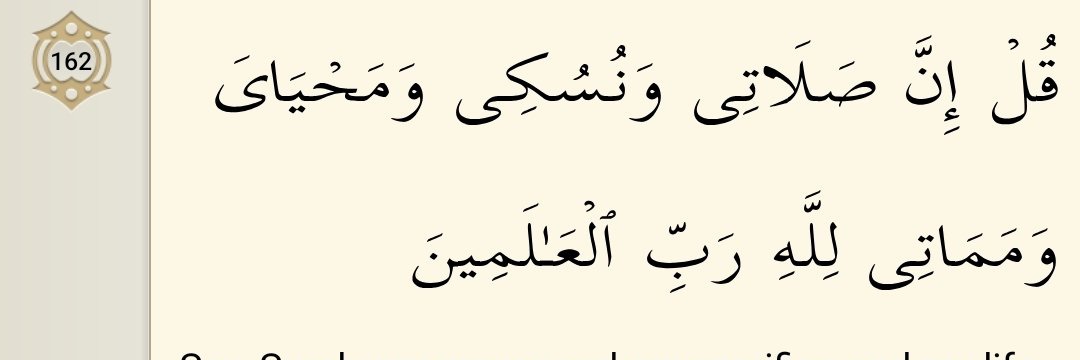 162
قُلْ إِنَّ صَلَاتِى وَنُسُكِى وَمَحْيَاىَ
وَمَمَاتِى لِلَّهِ رَبِّ ٱلْعَـٰلَمِينَ